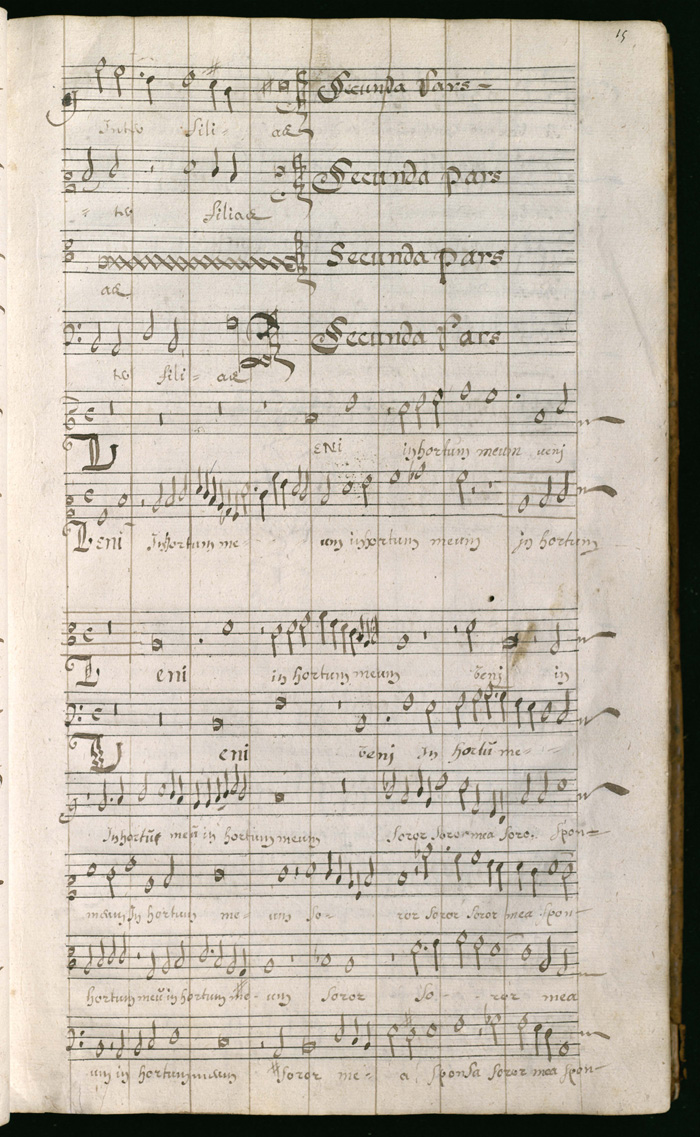 15
Secunda Pars
Inter fili- ae
Secunda pars
- ter filiae
Secunda pars
ae
Secunda Pars
ter fili- ae
V
ENI in hortum meum veni
Veni In hortum me- um in hortum meum in hortum
V eni in hortum meum veni in
V eni veni In hortū me-
In hortū meū in hortum meum Soror Soror mea Soro. Spon-
meum In hortum me- um So- ror Soror Soror mea Spon-
hortum meū in hortum me- um Soror So- ror mea
um in hortum meum Soror me- a Sponsa Soror mea Spon-